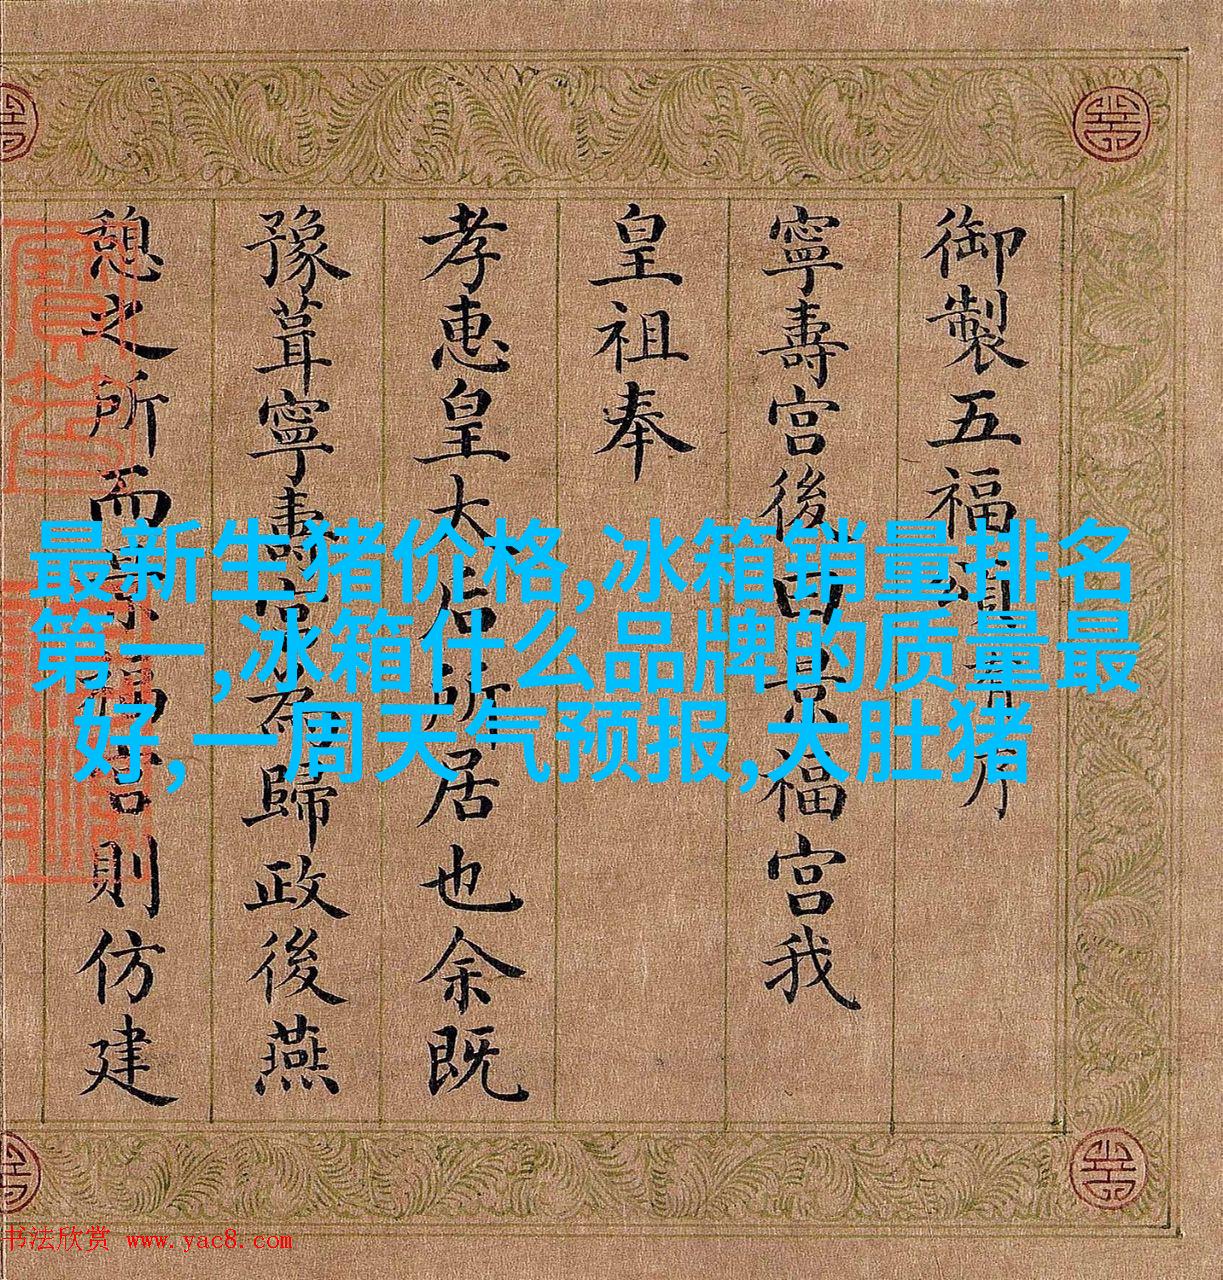 御製五福
寧壽宮後曰景福宮我
皇祖奉
孝惠皇太后所居也余既
豫葺寧壽宮為歸政後燕
憩之所而景福宮則仿建
最新生猪价格,冰箱销量排名
第一,冰箱什么品牌的质量最
好,一周天气预报,大肚猪
书法欣赏 www.yac8.com